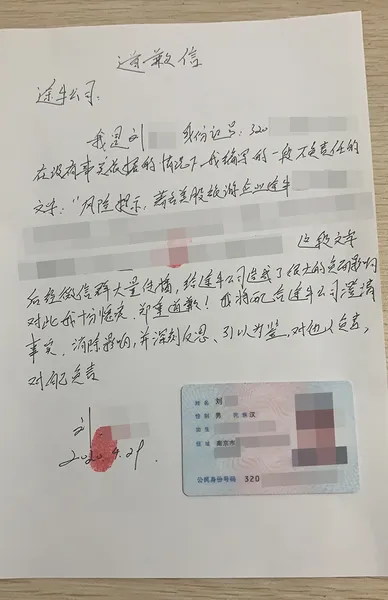 道歉信
途牛公司:
我是刘 身份证号:320
在没有事实依据的情况下我编写的一段不负责任的
文字:"风险提示,著名美股旅游企业途牛
这段文字
后经微信群大量传播,给途牛公司造成了很大的负面影响
对此我十分愧疚、郑重道歉!我将配合途牛公司澄清
事实、消除影响,并深刻反思、引以为鉴,对他人负责,
对自己负责
刘
2020.4.29.
姓名 刘
性别 男 民族 汉
出生
住址 南京市
公民身份号码 320